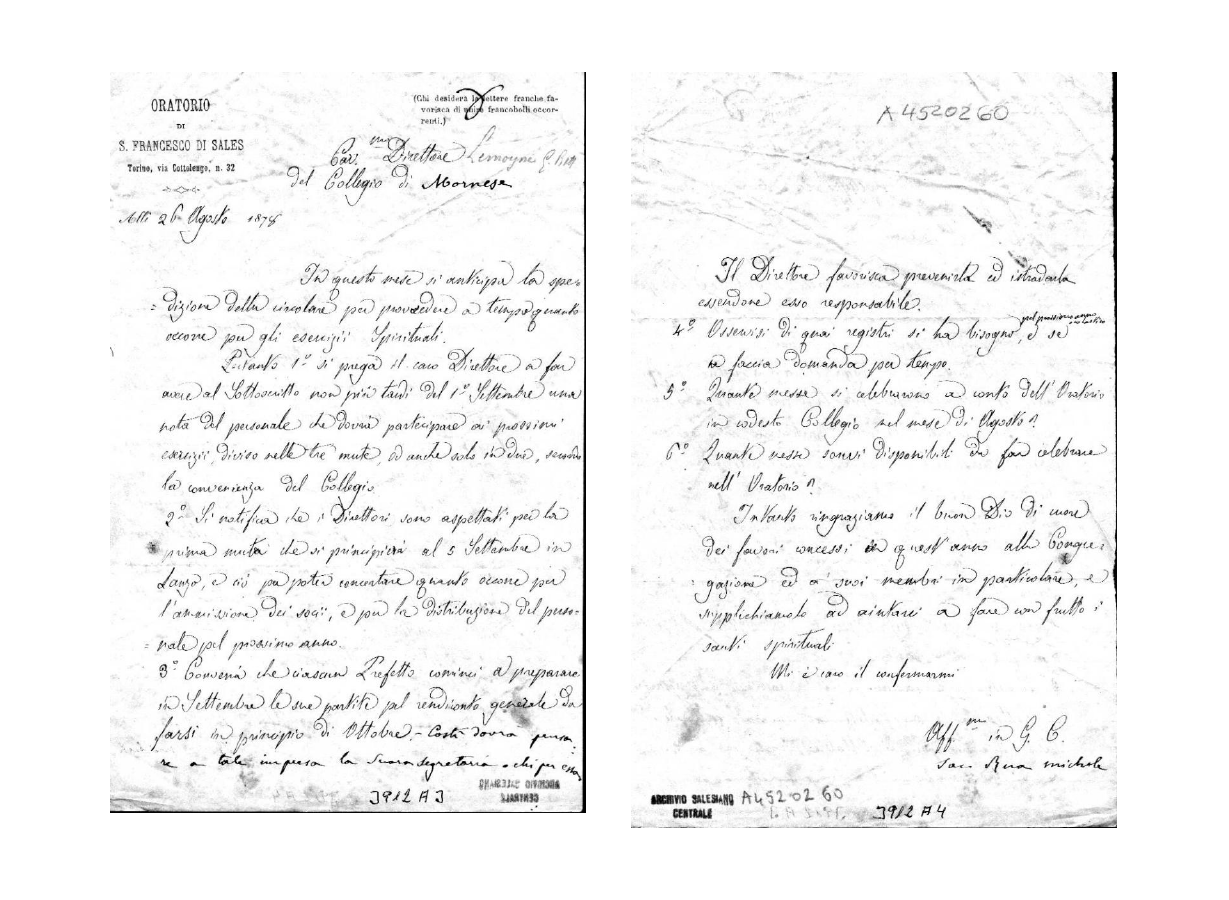 ORATORIO
DI
S. FRANCESCO DI SALES
Torino, via Cottolengo, n. 32
(Chi desidera le lettere franche, fa-
vorisca di unire francobolli occor-
renti.)
Car.mo Direttore Lemoyne G. Batt
del Collegio di Mornese
Alli 26 Agosto 1878
In questo mese si anticipa la spe-
= dizione della circolare per provvedere a tempo quanto
occorre per gli esercizii Spirituali.
Pertanto 1º si prega il caro Direttore a far
avere al Sottoscritto non più tardi del 1º Settembre una
nota del personale che dovrà partecipare ai prossimi
esercizii, diviso nelle tre mute, od anche solo in due, secondo
la convenienza del Collegio
2º Si notifica che i Direttori sono aspettati per la
prima muta che si principierà al 5 Settembre in
Lanzo, e ciò per poter concertare quanto occorre per
l'ammissione dei socii, e per la distribuzione del perso-
= nale pel prossimo anno.
3º Converrà che ciascun Prefetto cominci a preparare
in Settembre le sue partite pel rendiconto generale da
farsi in principio di Ottobre. - Costì dovrà pensa-
re a tale impresa la Suora segretaria o chi per essa
ARCHIVIO SALESIANO
CENTRALE
3912 A 3
A 4520260
Il Direttore favorisca prevenirla ed istradarla
essendone esso responsabile.
4º Osservisi di quai registri si ha bisogno pel prossimo anno scolastico, e se
ne faccia domanda per tempo.
5º Quante messe si celebrarono a conto dell' Oratorio
in codesto Collegio nel mese di Agosto?
6º Quante messe sonvi disponibili da far celebrare
nell' Oratorio?
Intanto ringraziamo il buon Dio di cuore
dei favori concessi in quest'anno alla Congre-
- gazione ed a' suoi membri in particolare, e
supplichiamolo ad aiutarci a fare con frutto i
santi spirituali
Mi è caro il confermarmi
Aff.mo in G. C.
Sac. Rua Michele
ARCHIVIO SALESIANO
CENTRALE
A452 02 60
3912 A4